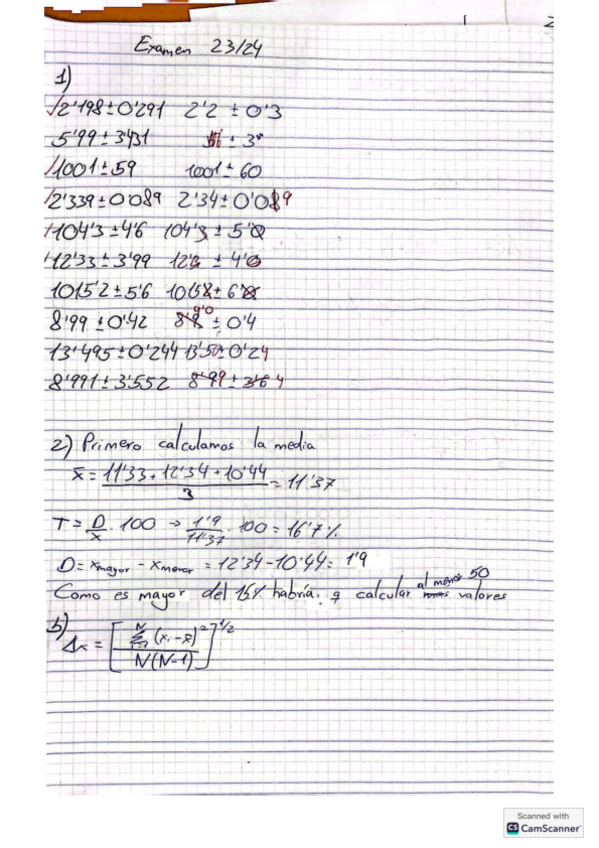 Examen 23/24
1)
2'198 ± 0'291 2'2 ± 0'3
5'99 ± 3'431 ± 3
1001 ± 59 1001 ± 60
2'339 ± 0'089 2'34 ± 0'089
104'3 ± 4'6 104'3 ± 5'0
12'33 ± 3'99 ± 4'0
1015'2 ± 5'6 ± 6
8'99 ± 0'42 9'0 ± 0'4
13'495 ± 0'244 13'50 ± 0'24
8'991 ± 3'552 ± 4
2) Primero calculamos la media
x̄ = 11'33 + 12'34 + 10'44 / 3 = 11'37
T = D/x̄ · 100 → 1'9/11'37 · 100 = 16'7 %
D = xmayor - xmenor = 12'34 - 10'44 = 1'9
Como es mayor del 15% habría q calcular al menos 50 valores
b)
Δx = [ Σ (xi - x̄)² / N(N-1) ]^1/2
Scanned with
CS CamScanner